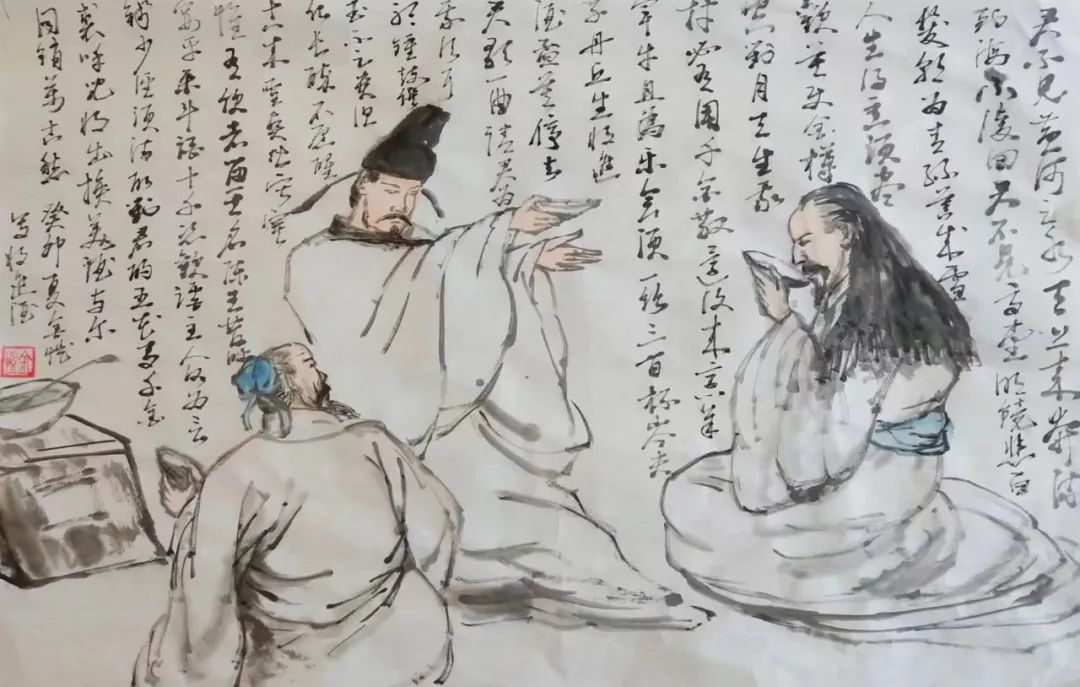 君不见黄河之水天上来奔流
到海不复回君不见高堂明镜悲白
发朝为青丝暮成雪
人生得意须尽
歡莫使金樽
空對月天生我
材必有用千金散还复来烹羊
宰牛且为乐会须一饮三百杯岑夫
子丹丘生将进
酒杯莫停
君歌一曲请君为
我倾耳
听钟鼓馔
玉不足贵但
愿长醉不愿醒
古来圣贤皆寂寞
惟有饮者留其名陈王昔时
宴平乐斗酒十千恣歡谑主人何为言
钱少径须沽取對君酌五花马千金
裘呼儿将出换美酒与尔
同销萬古愁 癸卯夏金
写将进酒